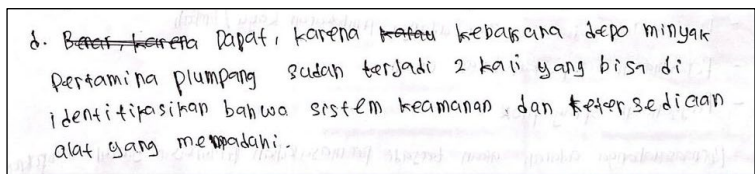 d. Benar, karena Dapat, karena kalau kebakaran depo minyak
Pertamina plumpang sudah terjadi 2 kali yang bisa di
identifikasikan bahwa sistem keamanan dan ketersediaan
alat yang memadahi.